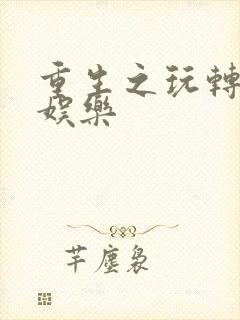 重生之玩轉
娛樂
芊塵裊